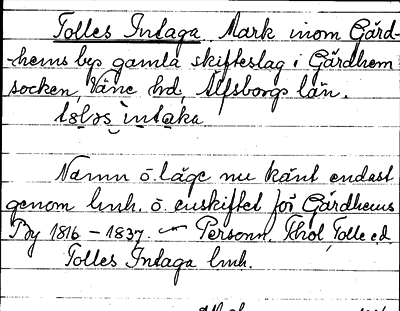 Tolles Intaga Mark inom Gärd-
-hems bys gamla skifteslag i Gärdhem
socken, Väne hd, Älfsborgs län.
Namn o. läge nu känt endast
genom lmh. o. enskiftet för Gärdhems
By 1816 – 1837. Personn. Thol, Tolle ed.
Tolles Intaga lmh.